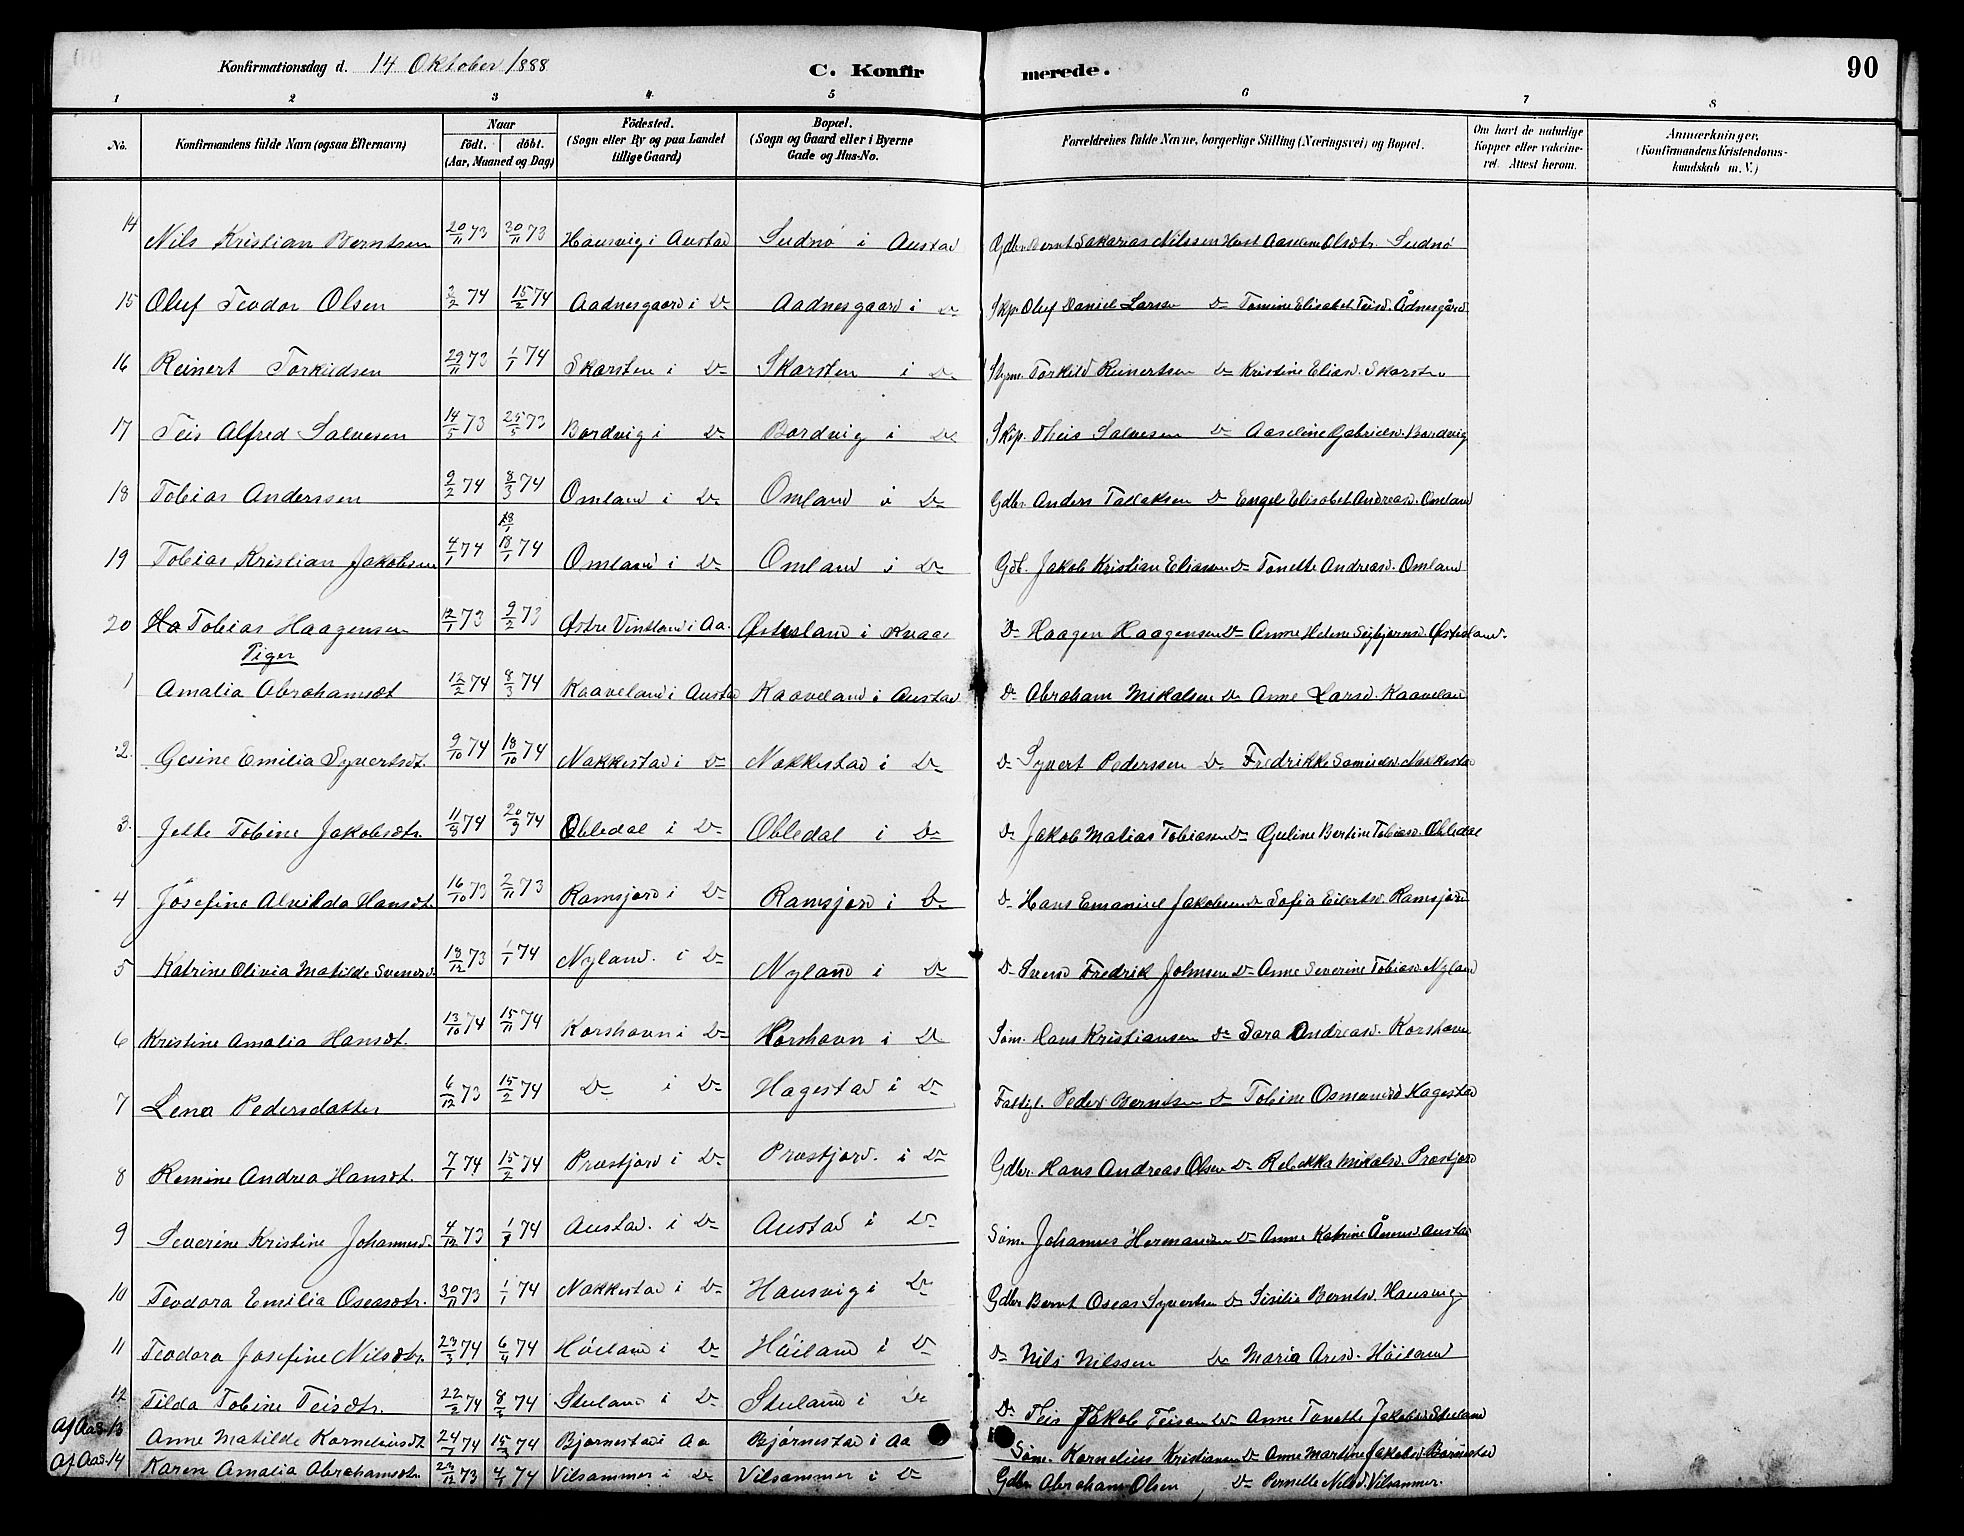 Konfirmationsdag d. 14 Oktober 1888 C. Konfirmerede. 90
1 2 3 4. 5 6 7 8
No. Konfirmandens fulde Navn (ogsaa Efternavn) Naar født. døbt. (Aar, Maaned og Dag) Fødested. (Sogn eller By og paa Landet tillige Gaard) Bopæl. (Sogn og Gaard eller i Byerne Gade og Hus-No. Forældrenes fulde Navne, borgerlige Stilling (Næringsvei) og Bopæl. Om havt de naturlige Kopper eller vakcineret. Attest herom. Anmærkninger, (Konfirmandens Kristendomskundskab m. V.)
14 Nils Kristian Berntsen 20/11 73 30/11 73 Hausvig i Austad Sudnø i Austad Gdbr. Bernt Sakarias Nilssen Hust Aaseline Olsdtr. Sudnø
15 Oluf Teodor Olsen 2/2 74 15/2 74 Aadnesgaard i Do Aadnesgaard i Do Skp. Oluf Daniel Larsen Do Tomine Elisabet Teisd. Ådnesgård
16 Reinert Torkildsen 29/11 73 1/1 74 Skarsten i Do Skarsten i Do Styrm. Torkild Reinertsen Do Kristine Eliasd. Skarsten
17 Teis Alfred Salvesen 14/5 73 25/5 73 Bordvig i Do Bordvig i Do Skip. Theis Salvesen Do Aaseline Gabrielsd. Bordvig
18 Tobias Anderssen 9/2 74 8/3 74 Omland i Do Omland i Do Gdbr. Anders Tallaksen Do Engel Elisabet Andreasd. Omland
18/1
19 Tobias Kristian Jakobsen 4/1 74 18/1 74 Omland i Do Omland i Do Gdb. Jakob Kristian Eliassen Do Tonette Andreasd. Omland
20 Ha Tobias Haagensen 12/1 73 9/2 73 Østre Vintland i Aa. Østesland i Kvaas Do Haagen Haagensen Do Anne Helene Seibjørnsd. Østesland.
Piger
1 Amalia Abrahamsdt 12/2 74 8/3 74 Kaaveland i Austad Kaaveland i Austad Do Abraham Mikalsen Do Anne Larsd. Kaavelan
2. Gesine Emilia Syvertsdt. 9/10 74 18/10 74 Nakkestad i Do Nakkestad i Do Do Syvert Pederssen Do Fredrikke Samuelsd. Nakkestad
3. Jette Tobine Jakobsdtr. 11/3 74 20/3 74 Obledal i Do Obledal i Do Do Jakob Matias Tobiasen Do Guline Bertine Tobiasd. Obledal
4 Jósefine Alvilda Hansdt. 16/10 73 2/11 73 Ramsjord i Do Ramsjord i Do Do Hans Emanuel Jakobsen Do Sofia Eilertsd. Ramsjord
5 Katrine Olivia Matilde Svensd. 18/12 73 1/1 74 Nyland. i Do Nyland i Do Do Svend Fredrik Johnsen Do Anne Severine Tobiasd. Nyland
6 Kristine Amalia Hansdt. 13/10 74 15/11 74 Korshavn i Do Korshavn i Do Søm. Hans Kristiansen Do Sara Andreasd. Korshavn
7 Lena Pedersdatter 6/12 73 15/2 74 Do i Do Hagestad i Do Fattigl. Peder Berntsen Do Tobine Osmundsd Hagestad
8 Remine Andrea Hansdt. 7/1 74 15/2 74 Præstjord i Do Præstjord. i Do Gdbr. Hans Andreas Olsen Do Rebekka Mikalsd. Præstjord
9 Severine Kristine Johannesd. 4/12 73 1/1 74 Austad. i Do Austad i Do Søm. Johannes Hermansen Do Anne Katrine Ånensd. Austad
10 Teodora Emilia Oseasdtr. 30/11 73 1/1 74 Nakkestad i Do Hausvig i Do Gdbr Bernt Oseas Syvertsen Do Sisilia Berntsd. Hausvig
11 Teodora Josefine Nilsdtr. 23/3 74 6/4 74 Høiland i Do Høiland i Do Do Nils Nilssen Do Maria Aresd. Høiland
12 Tilda Tobine Teisdtr. 22/2 74 8/3 74 Stuland i Do Stuland i Do Do Teis Jakob Teisen Do Anne Tonette Jakobsd. Stuland
Af Aas. 13 Anne Matilde Korneliusdt 24/1 74 15/3 74 Bjørnestad i Aa Bjørnestad i Aa Søm. Kornelius Kristiansen Do Anne Martine Jakobsd. Bjørnestad
Af Aas. 14 Karen Amalia Abrahamsdtr. 23/12 73 4/1 74 Vilsammer i Do Vilsammer i Do Gdbr Abraham Olsen Do Pernelle Nilsd. Vilsammer.